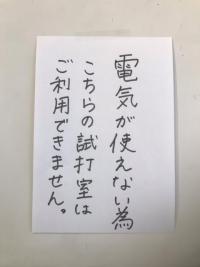 電気が使えない為
こちらの試打室は
ご利用できません。